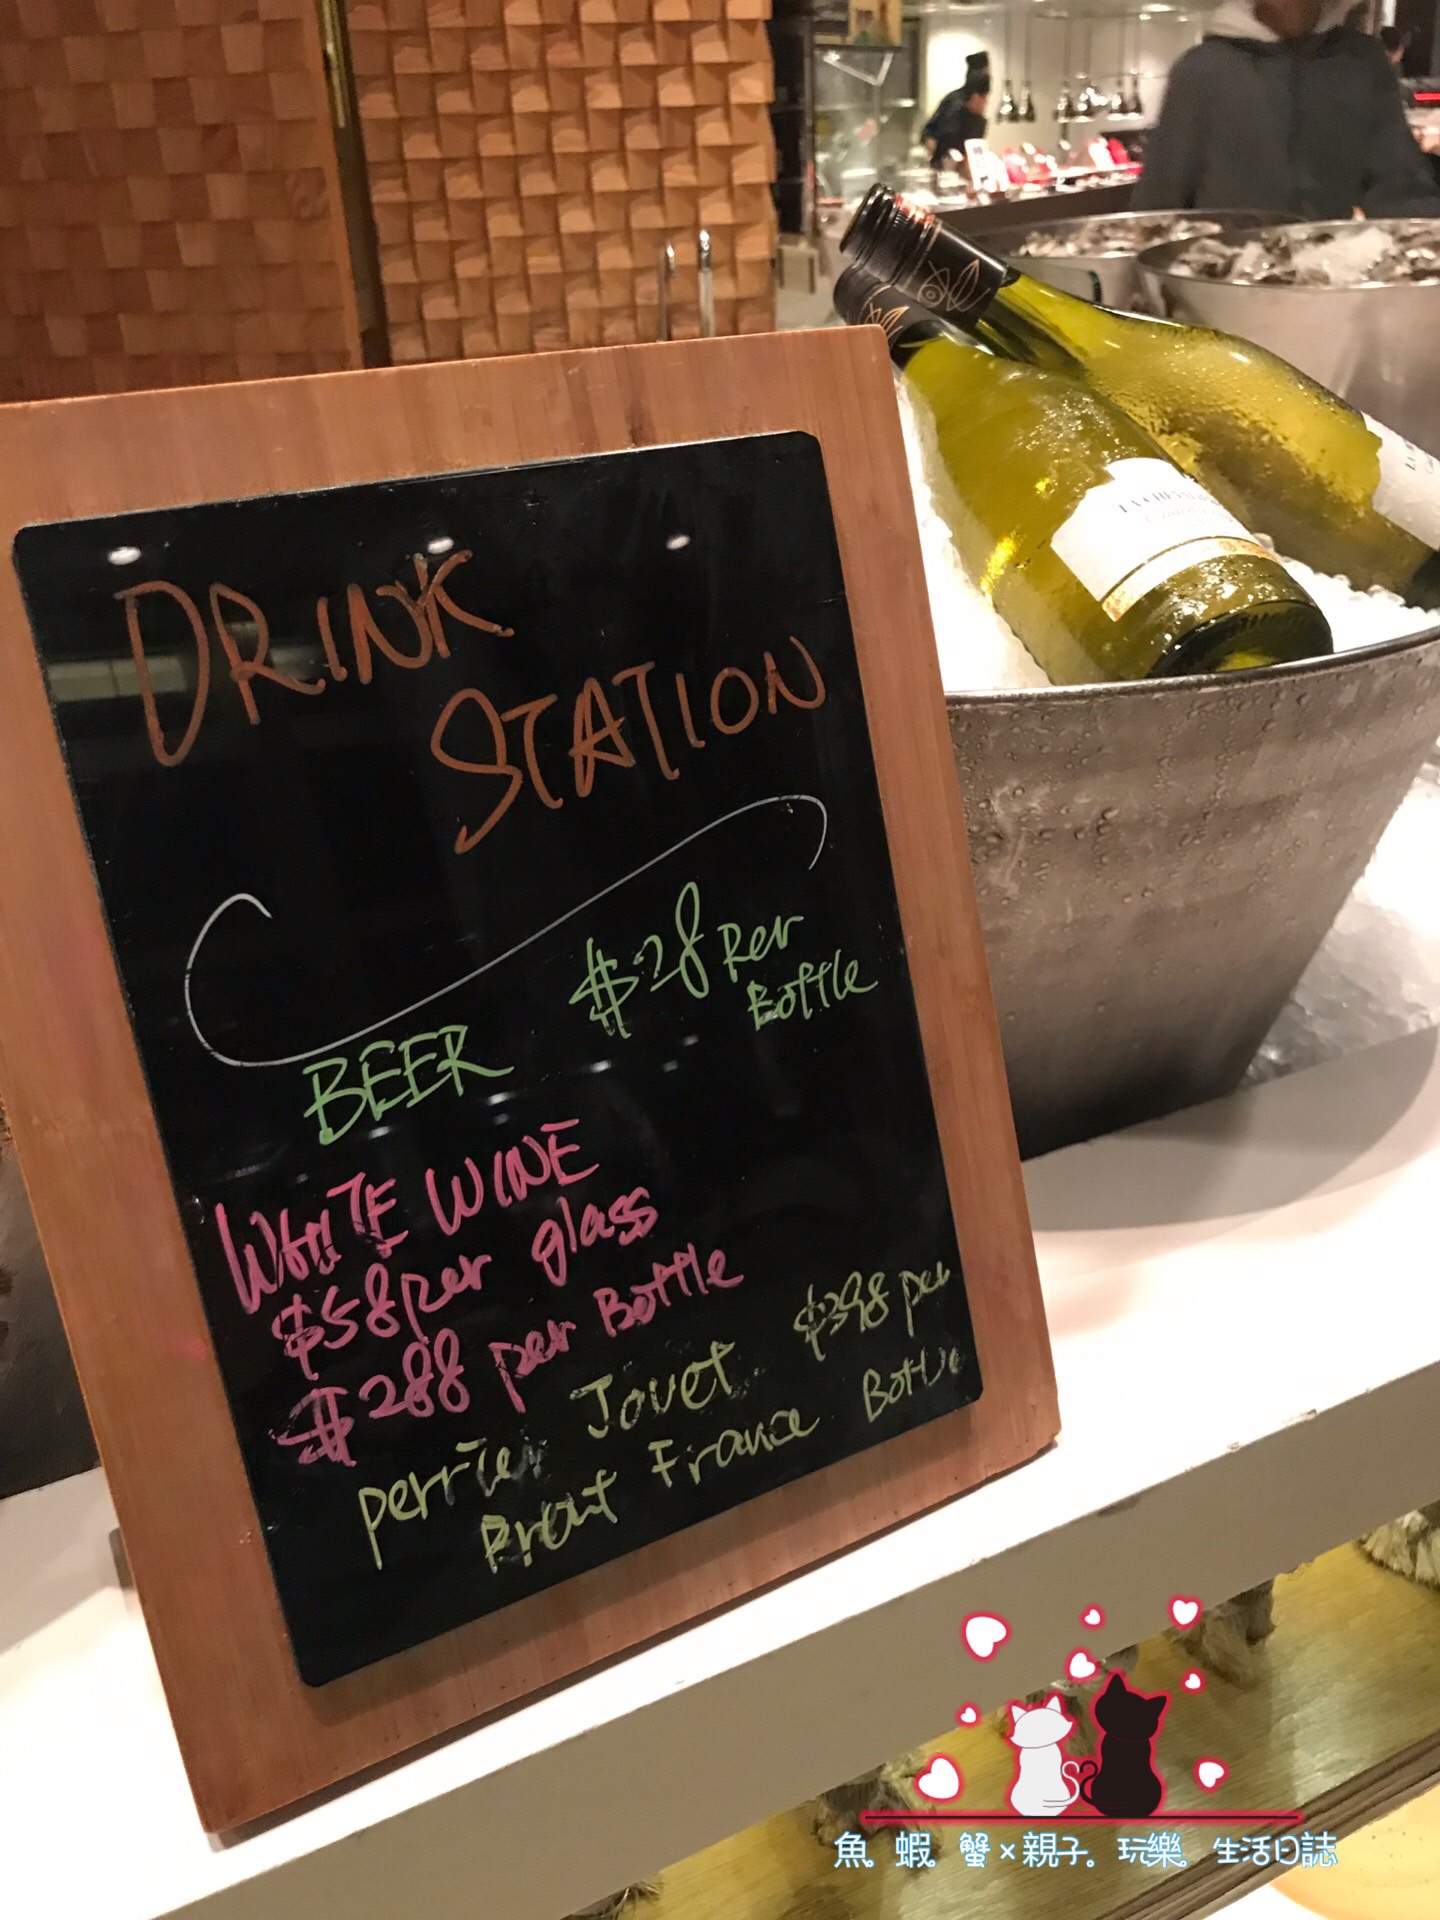 DRINK
STATION
BEER $28 per
Bottle
WHITE WINE
$58 per glass
$288 per Bottle
perrier Jouet $398 per
Brout France Bottle
LA CHEV
魚。蝦。蟹×親子。玩樂。生活日誌